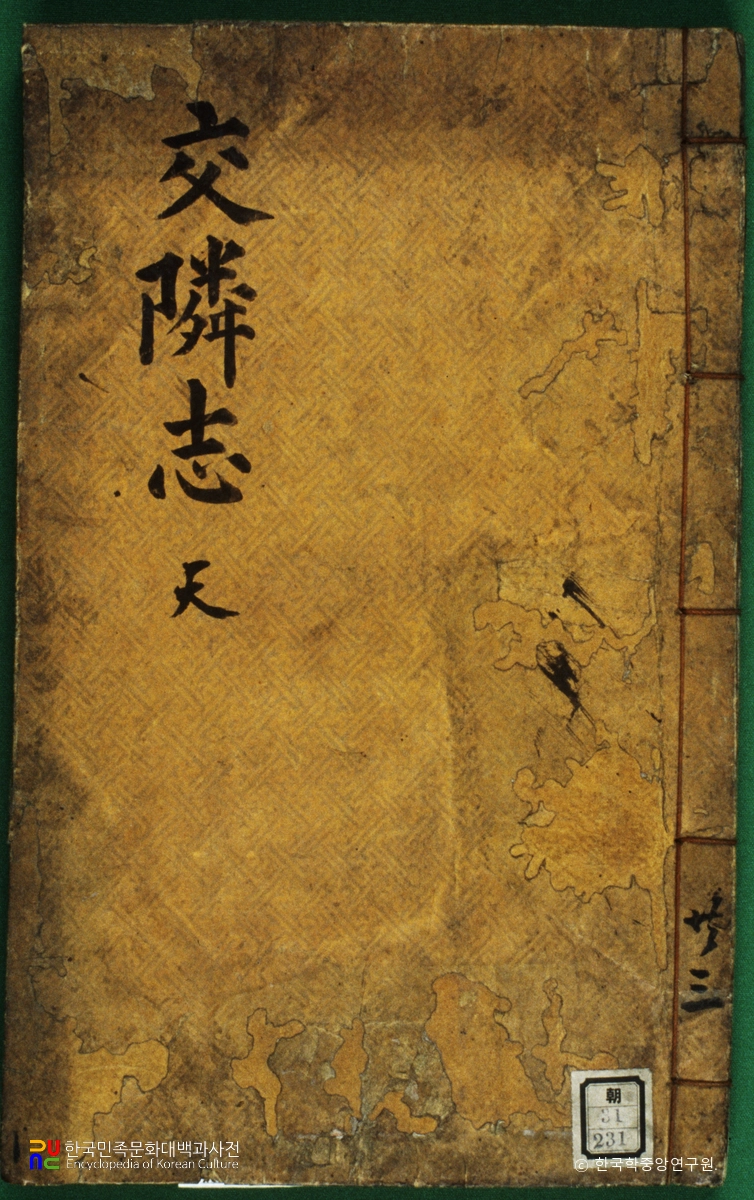 交隣志 天
共三
朝
31
231
한국민족문화대백과사전
Encyclopedia of Korean Culture
© 한국학중앙연구원.